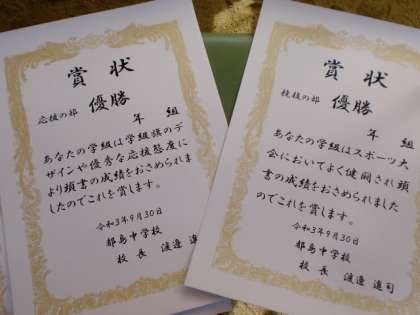 賞状
応援の部 優勝
年 組
あなたの学級は学級旗のデ
ザインや優秀な応援態度に
より頭書の成績をおさめられま
したのでこれを賞します。
令和3年9月30日
都島中学校
校長 渡邉 進
賞状
競技の部 優勝
年 組
あなたの学級はスポーツ大
会においてよく健闘され頭
書の成績をおさめられました
のでこれを賞します。
令和3年9月30日
都島中学校
校長 渡邉 進司